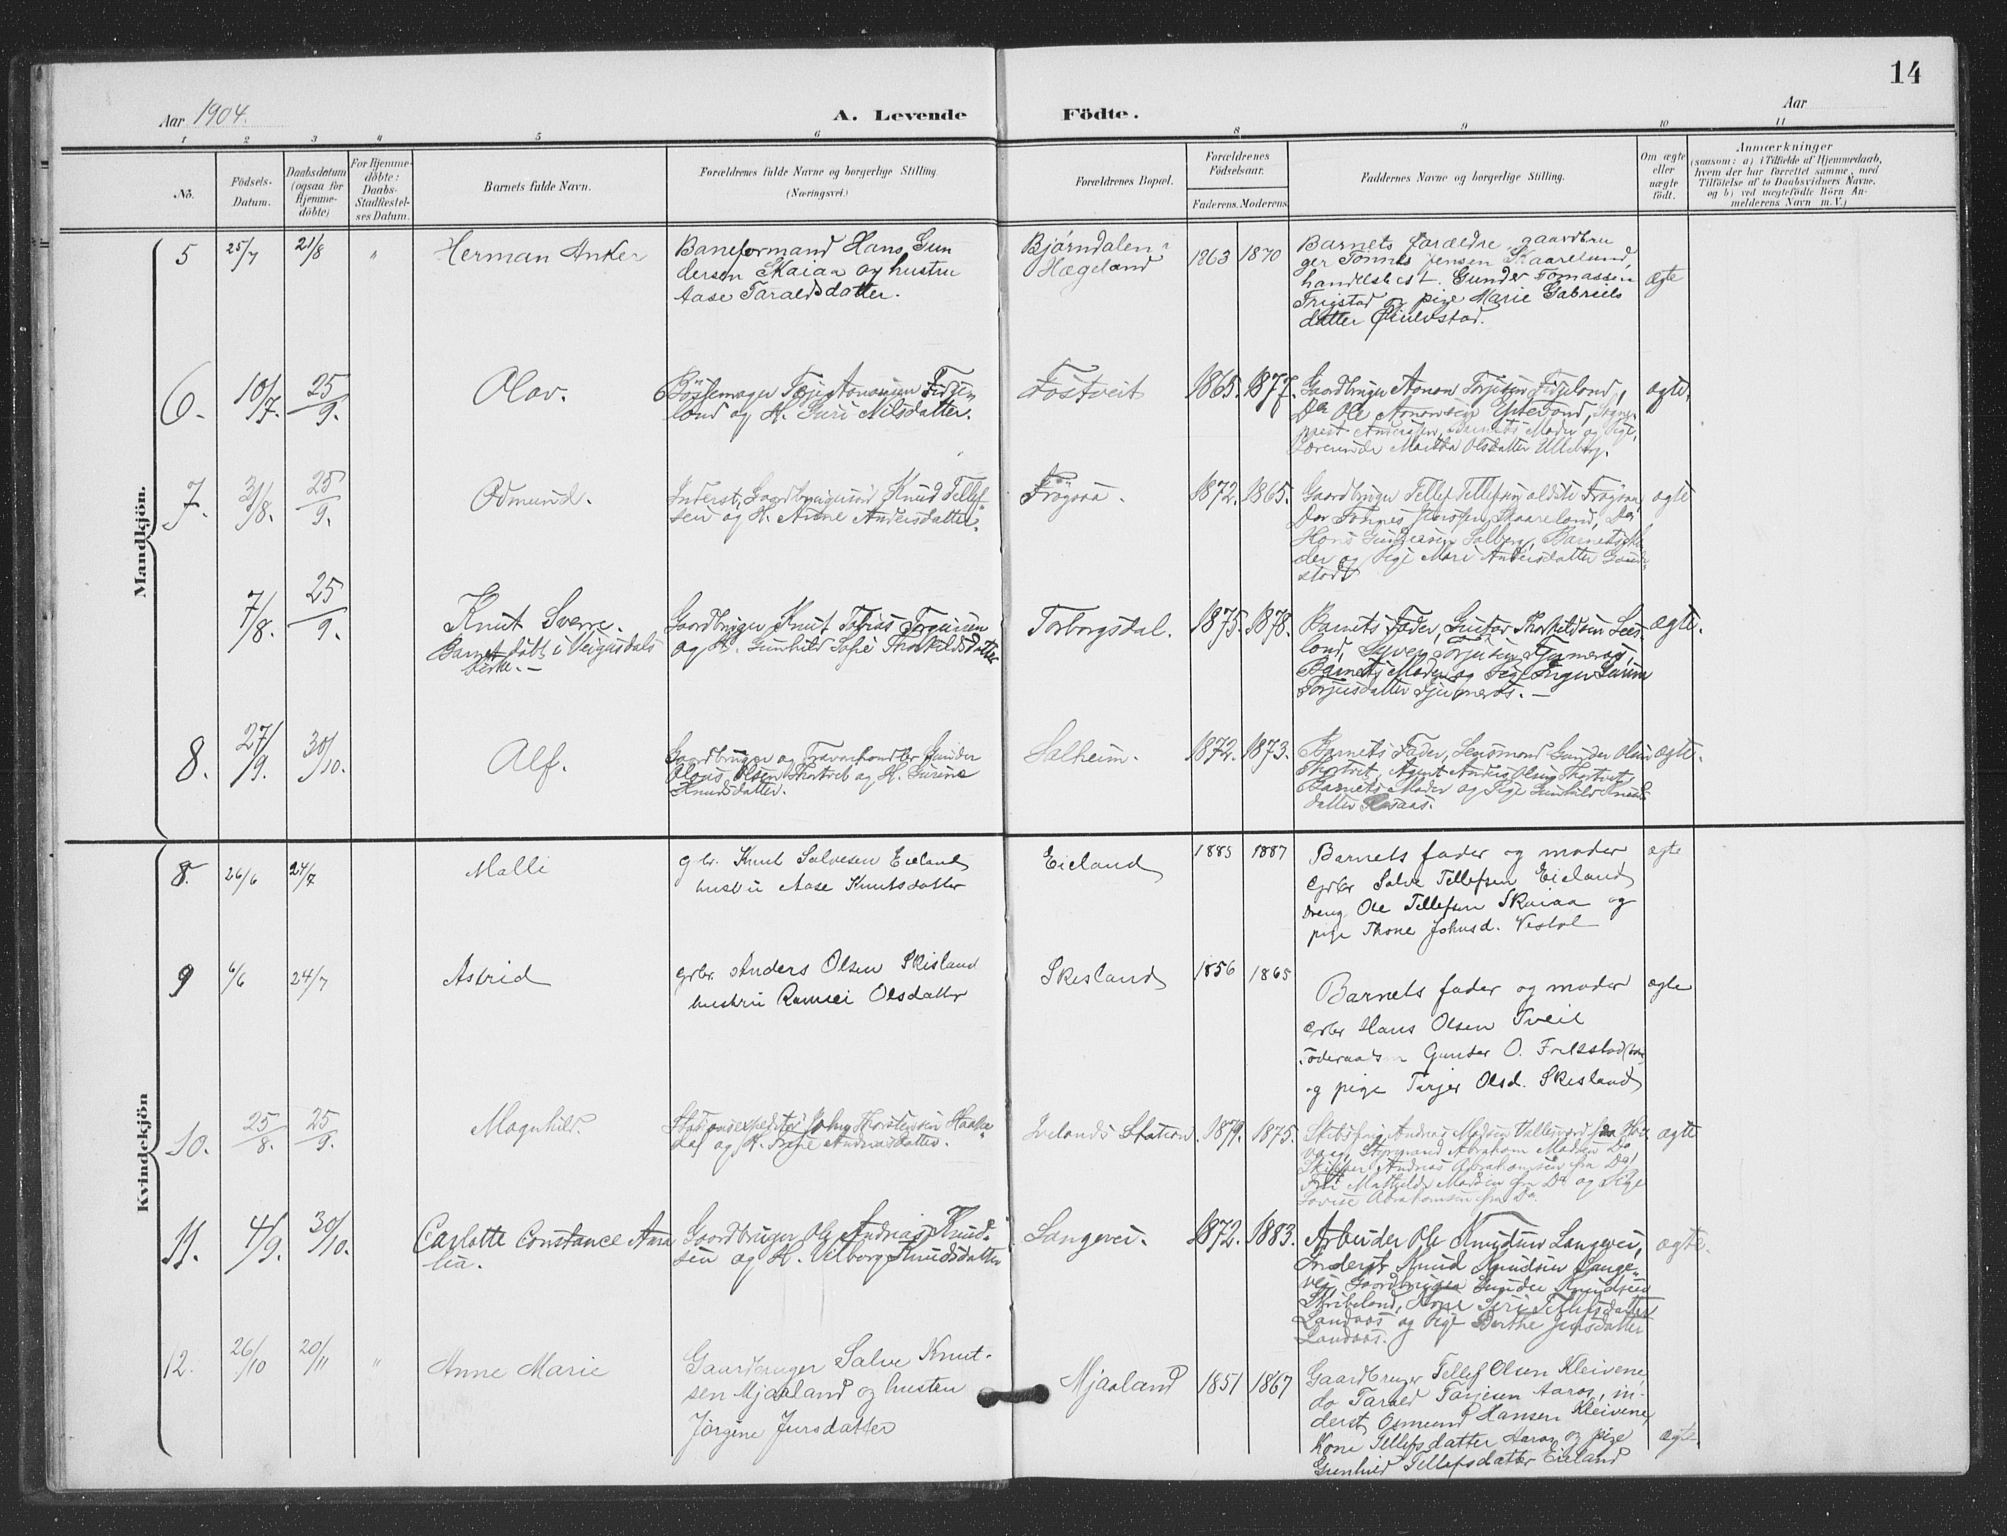 14
Aar 1904.
A. Levende Födte.
Aar
1 2 3 4 5 6 8 9 10 11
Nö.
Födsels-
Datum.
Daabsdatum
(ogsaa for
Hjemme-
döbte)
For Hjemme-
döbte:
Daabs-
Stadfæstel-
ses Datum.
Barnets fulde Navn.
Forældrenes fulde Navne og borgerlige Stilling.
(Næringsvei.)
Forældrenes Bopæl.
Forældrenes
Födselsaar.
Faderens. Moderens.
Faddernes Navne og borgerlige Stilling.
Om ægte
eller
uægte
födt.
Anmærkninger
(saasom: a) i Tilfælde af Hjemmedaab,
hvem der har forrettet samme, med
Tilföielse af to Daabsvidners Navne,
og b) ved uægtefödte Börn An-
melderens Navn m. V.)
Mandkjön.
5 25/7 21/8 "
Herman Anker
Baneformand Hans Gun
dersen Skaiaa og hustru
Aase Taraldsdatter.
Bjørndalen
Hægeland
1863 1870
Barnets forældre, gaardbru
ger Tønnes Jensen Skaareland,
handelsbest. Gunder Tomassen
Frigstad og pige Marie Gabriels
datter
ægte
6. 10/7. 25/9.
Olav.
Bössemager Terje Aanonsen Fidjen
land og H. Guri Nilsdatter.
Tostveit
1865. 1877.
Gaardbruger Aanon Terjesen Fidjeland,
Do Ole Aanonsen
Barnets Moder og Pige,
Lærerinde Martha Olsdatter Ulleberg.
ægte.
7. 3/8. 25/9.
Odmund.
Inderst, Gaardbrugersøn Knud Tellef
sen og H. Anne Andersdatter.
Frøysaa.
1872. 1865.
Gaardbruger Tellef Tellefsen ældste Frøysaa,
Do Tønnes Jensen Skaareland, Do
Hans Gundersen Solberg, Barnets Mo
der og Pige Mari Andersdatter
ægte
7/8. 25/9.
Knut Sverre.
Barnet døbt i Veigusdals
Kirke. —
Gaardbruger Knut Tobias Torjusen
og H. Gunhild Sofie Thorkildsdatter
Torborgsdal.
1875. 1878.
Barnets Fader, Gustav Thorkildsen
land, Syvert Torjusen
Barnets Moder og Pige Inger Gurine
Torjusdatter —
ægte.
8. 27/9. 30/10.
Alf.
Gaardbruger og Travarhandler Gunder
Olaus Olsen Thortveit og H. Gurine
Knudsdatter.
Solheim.
1872. 1873.
Barnets Fader, Lensmand Gunder Olsen
Thortveit, Agent Anders Olsen Thortveit,
Barnets Moder og Pige Gunhild Knuds
datter
ægte.
Kvindekjön
8. 26/6 24/7
Malli
gbr. Knut Salvesen Eieland
hustru Aase Knutsdatter
Eieland
1885 1887
Barnets fader og moder
Grbr Salve Tellefsen Eieland
Dreng Ole Tellefsen Skaiaa og
pige Thone Johnsd. Vestøl
ægte
9 6/6 24/7
Astrid
Grbr. Anders Olsen Skisland
hustru Ramsei Olsdatter
Skisland
1856 1865
Barnets fader og moder
Grbr Hans Olsen Tveit
Føderaadsm Gunder O.
og pige Terjer Olsd. Skisland
ægte
10. 25/8. 25/9.
Magnhild.
Stationsexpeditør John Thorstensen Haaka
dal og H. Trine Andreasdatter.
Ivelands Station
1879. 1875.
Andreas Madsen
Styrmand Abraham Madsen Do
Skipper Andreas Abrahamsen fra Do,
Frú Mathilde Madsen fra Do og Pige
Lovise Abrahamsen fra Do.
ægte
11. 4/9. 30/10.
Carlotte Constance Ama
lia.
Gaardbruger Ole Andreas Knud-
sen og H. Vilborg Knudsdatter
Langevei.
1872. 1883.
Arbeider Ole Knudsen Langevei,
Inderst Knud Knudsen Lange-
vei, Gaardbruger Gunder Knudsen
Skribeland, Kone Siri Tellefsdatter
Landaas og Pige Berthe Jensdatter
Landaas.
ægte.
12. 26/10 20/11 "
Anne Marie
Gaardbruger Salve Knut-
sen Mjaaland og hustru
Jørgine Jursdatter
Mjaaland
1851 1867
Gaardbruger Tellef Olsen Kleivene,
do Tarald Tarjesen Aaros, in-
derst Osmund Hansen Kleivene,
Kone Tellefsdatter Aaros og pige
Gunhild Tellefsdatter Eieland
ægte